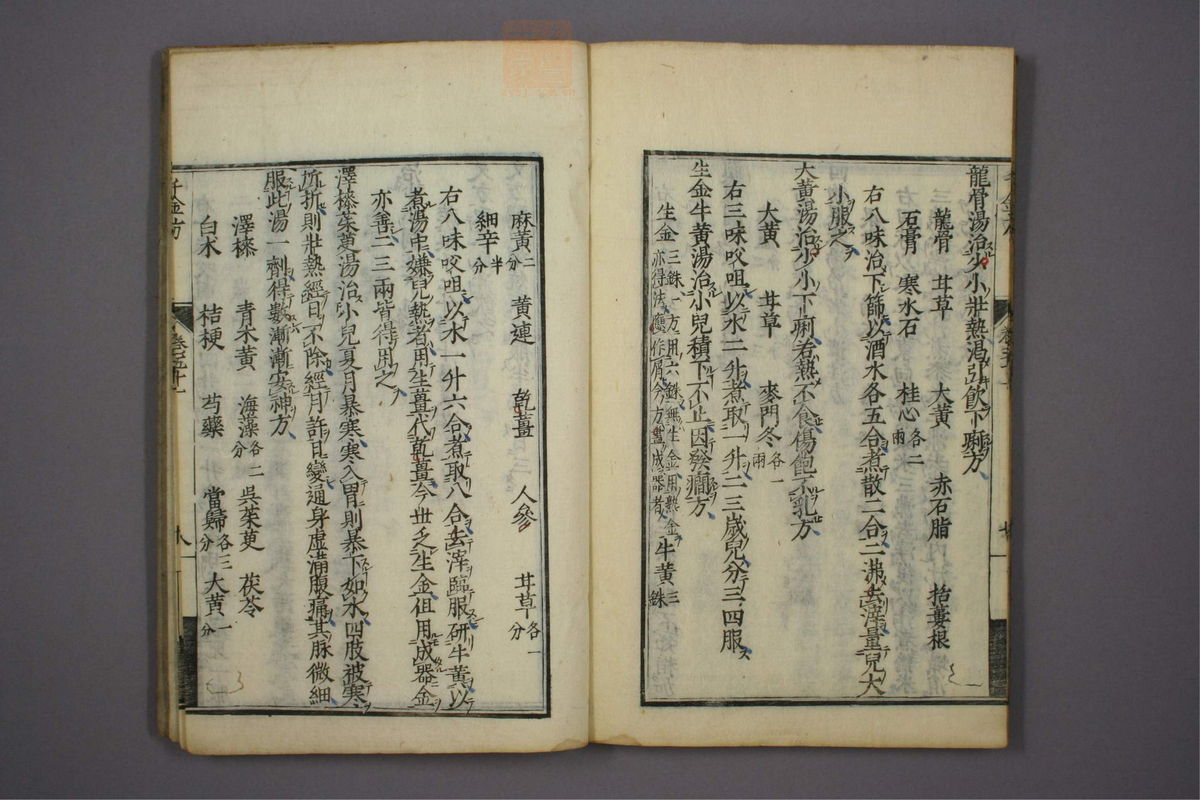 龍骨湯治少小壯熱渴引飲下痢方
龍骨 甘草 大黃 赤石脂 括蔞根
石膏 寒水石 桂心各二兩
右八味治下篩以酒水各五合煮散二合二沸去滓量兒大
小服之
大黃湯治少小下痢若熱不食傷飽不乳方
大黃 甘草 麥門冬各一兩
右三味㕮咀以水二升煮取一升二三歲兒分三四服
生金牛黃湯治小兒積下不止因發癇方
生金三銖一方用六銖無生金用熟金亦得法應作屑今方盡成器者 牛黃三銖
麻黃二分 黃連 乾薑 人參 甘草各一分
細辛半分
右八味㕮咀以水一升六合煮取八合去滓臨服研牛黃以
煮湯中嫌兒熱者用生薑代乾薑今世乏生金但用成器金
亦善二三兩皆得用之
澤㯶茱萸湯治小兒夏月暴寒寒入胃則暴下如水四肢被寒
所折則壯熱經日不除經月許日變通身虛滿腹痛其脉微細
服此湯一劑得數漸漸安神方
澤㯶 青木黃 海藻各二分 吳茱萸 茯苓
白朮 桔梗 芍藥 當歸各三分 大黃一分
千金方